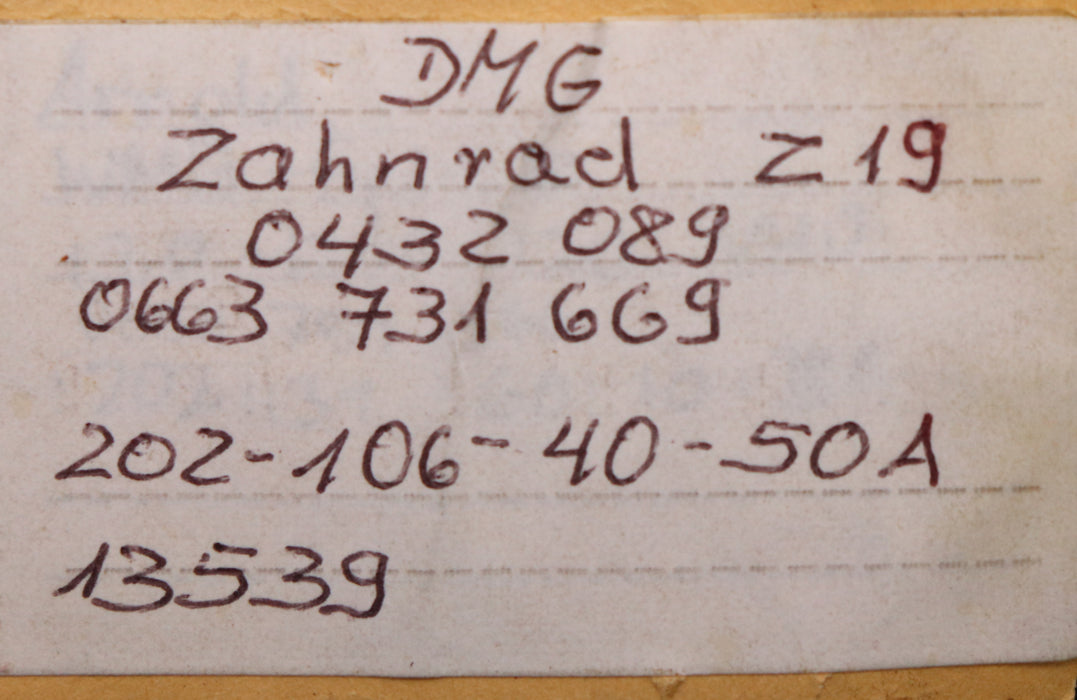 DMG
Zahnrad Z 19
0432 089
0663 731 669
202-106-40-50A
13539